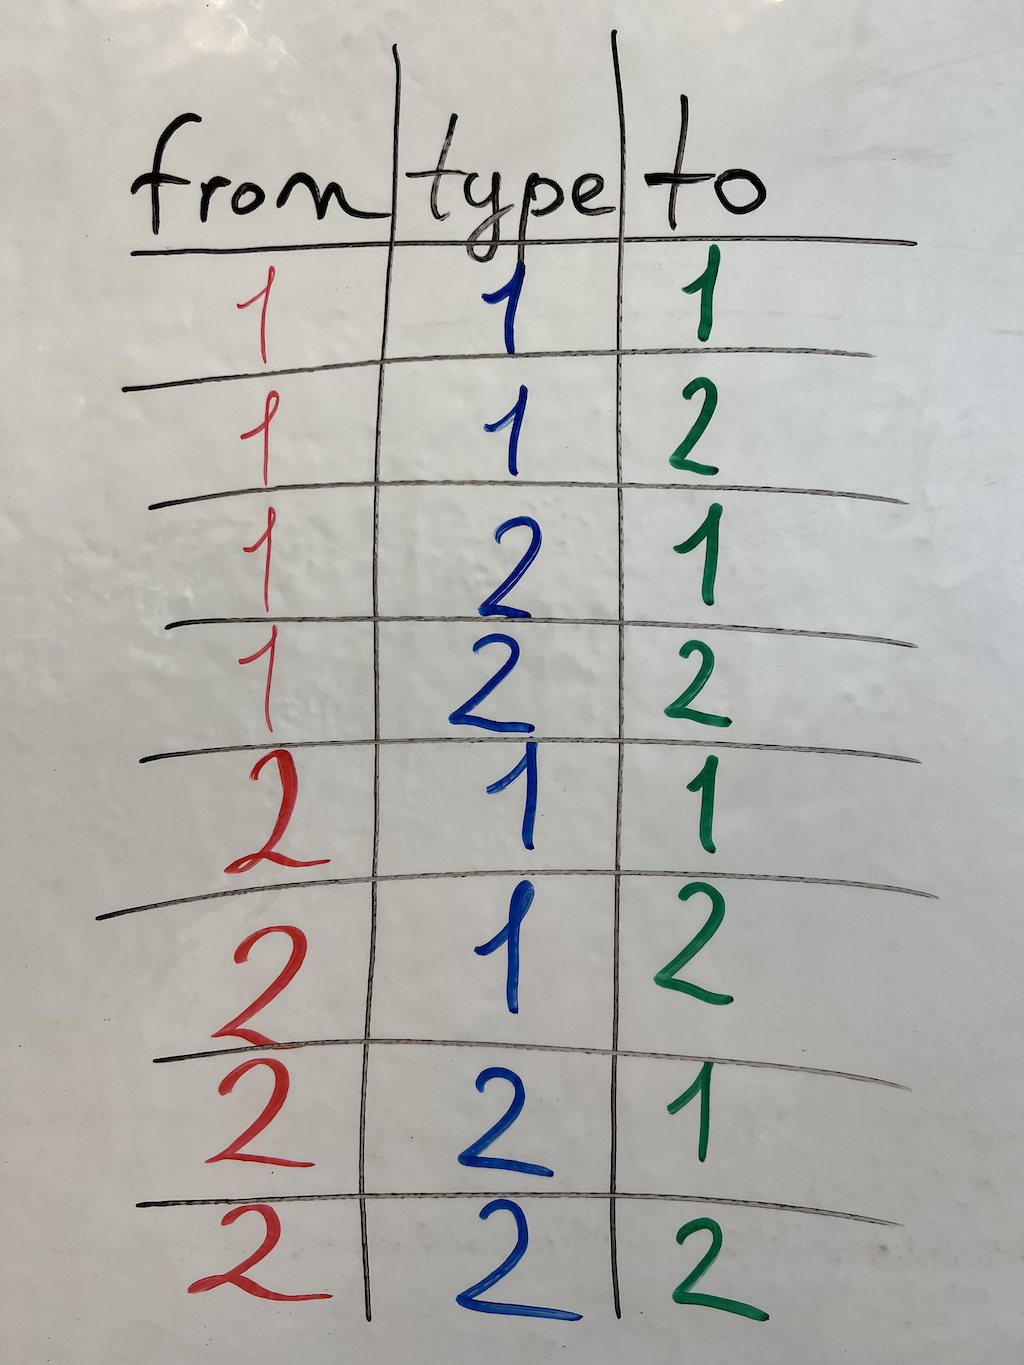 from type to
1 1 1
1 1 2
1 2 1
1 2 2
2 1 1
2 1 2
2 2 1
2 2 2